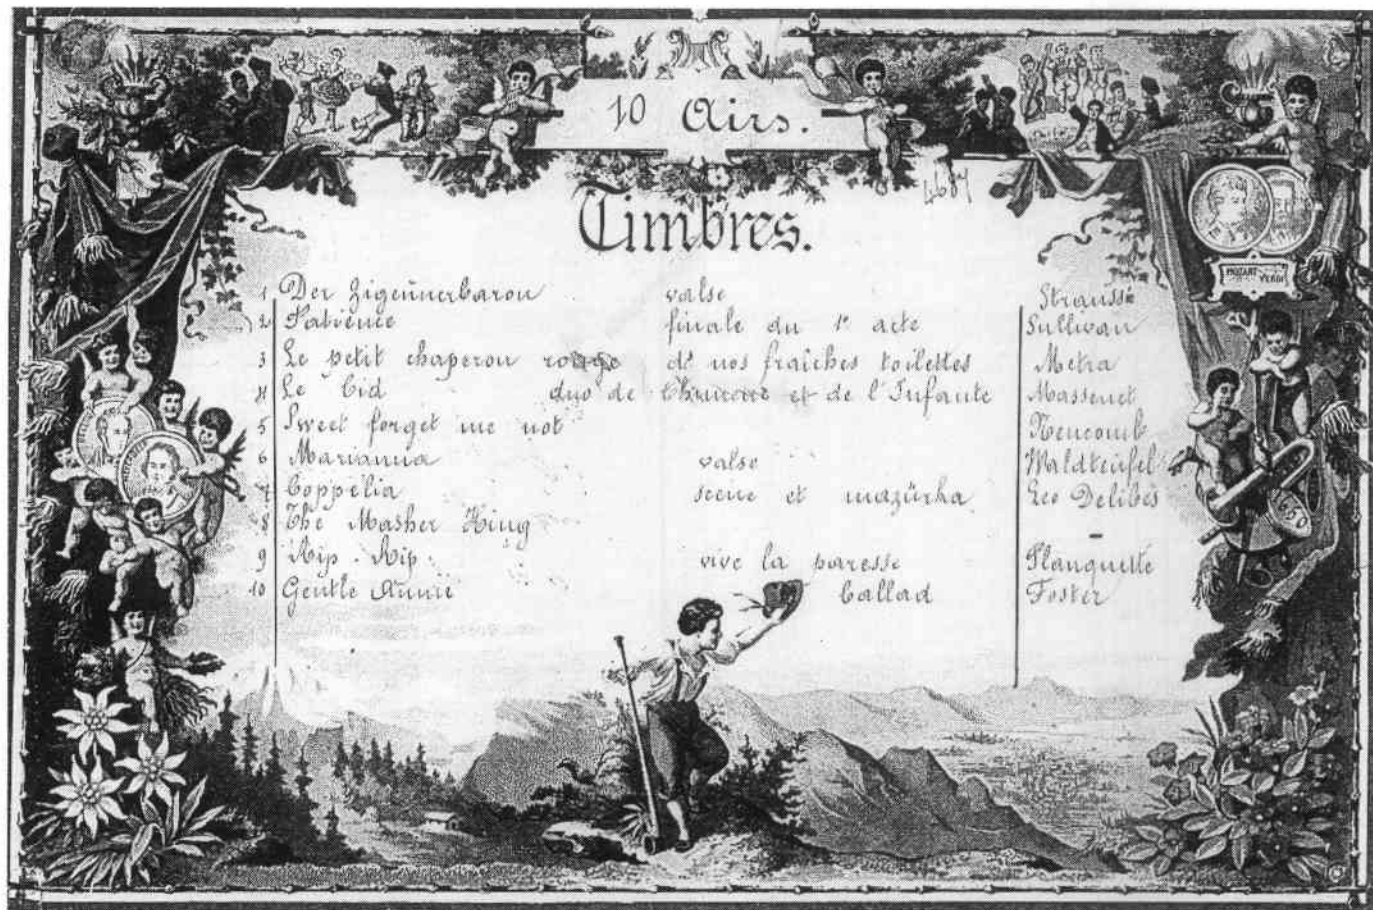 10 Airs.
4687
Timbres.
MOZART VERDI
1 Der Zigeünerbaron valse Strauss
2 Patience finale du 1e acte Sullivan
3 Le petit chaperon rouge de nos fraîches toilettes Metra
4 Le Cid duo de Chimene et de l'Infante Massenet
5 Sweet forget me not Newcomb
6 Marianna valse Waldteüfel
7 Coppélia scene et mazürka Leo Delibes
8 The Masher King -
9 Rip. Rip. vive la paresse Planquette
10 Gentle Annie Ballad Foster